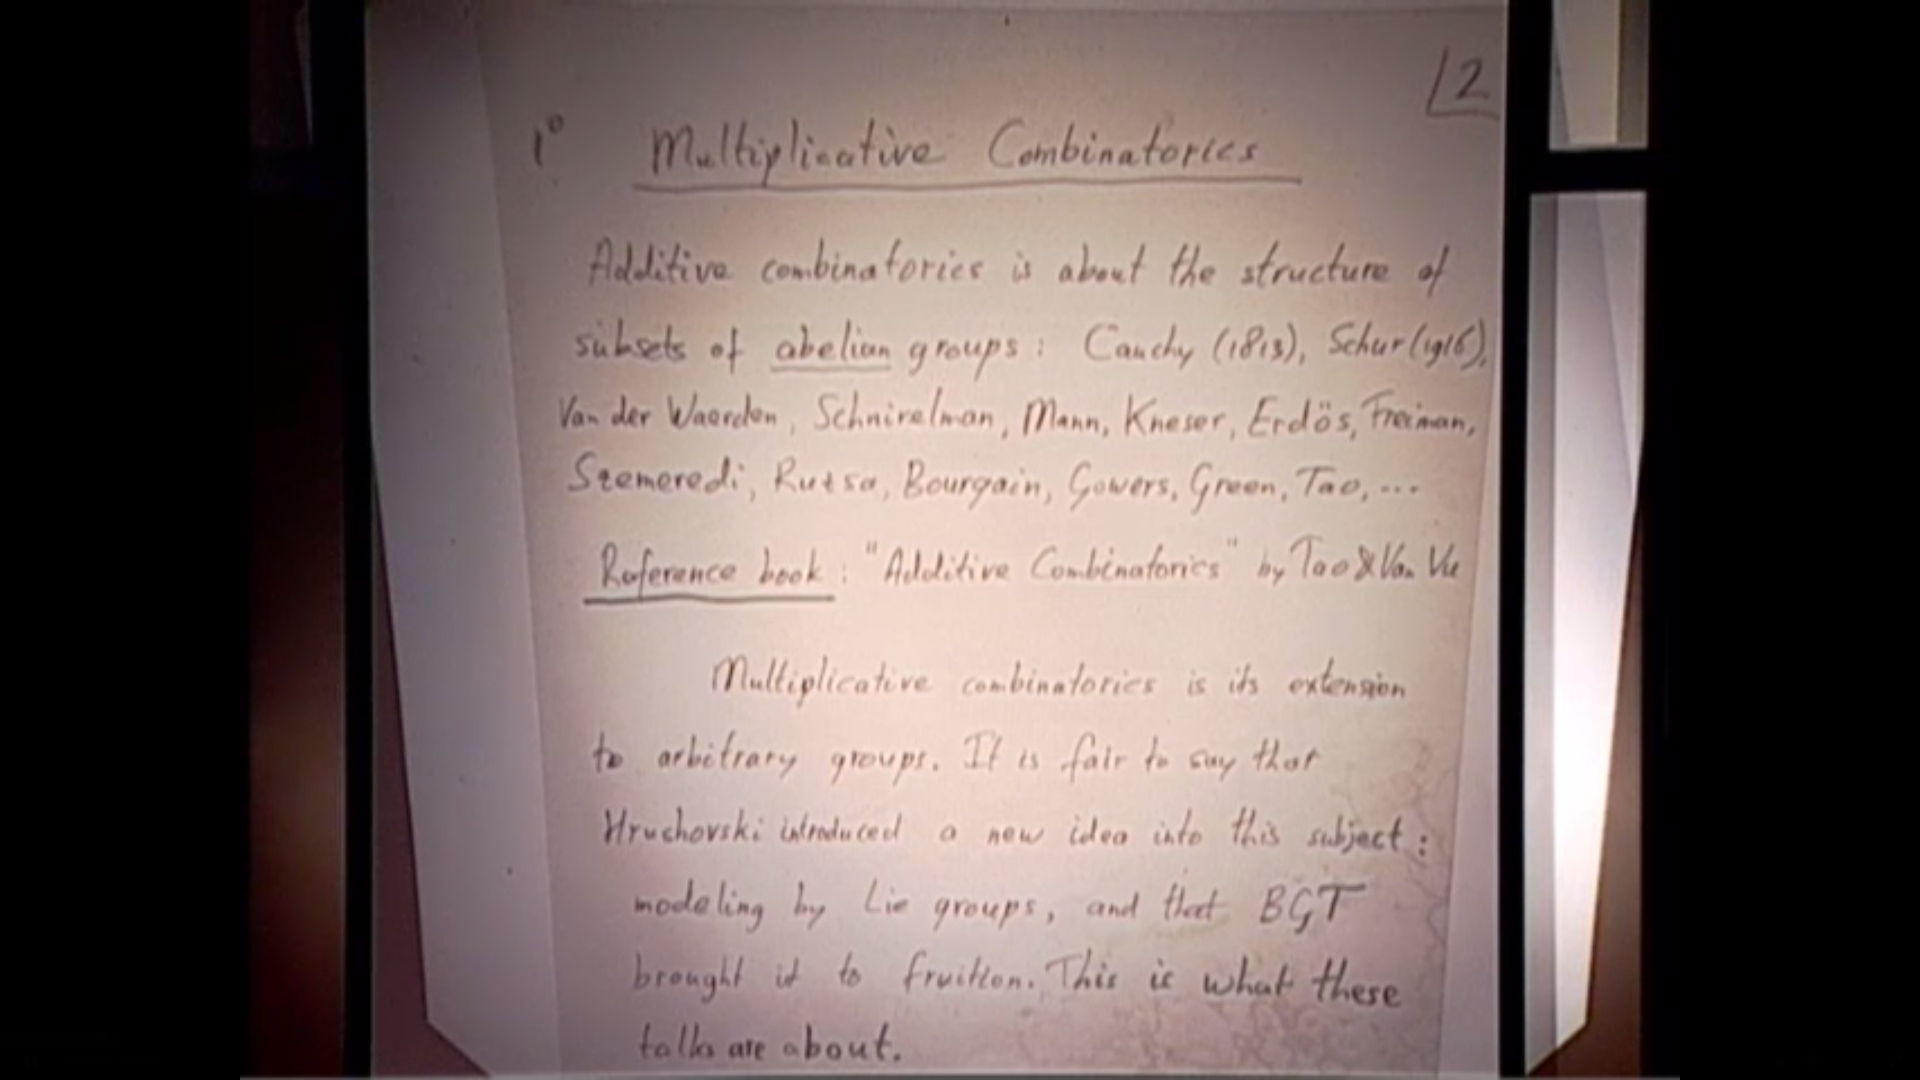 2
1° Multiplicative Combinatorics
Additive combinatorics is about the structure of
subsets of abelian groups : Cauchy (1813), Schur (1916),
Van der Waerden, Schnirelman, Mann, Kneser, Erdös, Freiman,
Szemeredi, Ruzsa, Bourgain, Gowers, Green, Tao, ...
Reference book : "Additive Combinatorics" by Tao & Van Vu
Multiplicative combinatorics is its extension
to arbitrary groups. It is fair to say that
Hruchovski introduced a new idea into this subject :
modeling by Lie groups, and that BGT
brought it to fruition. This is what these
talks are about.